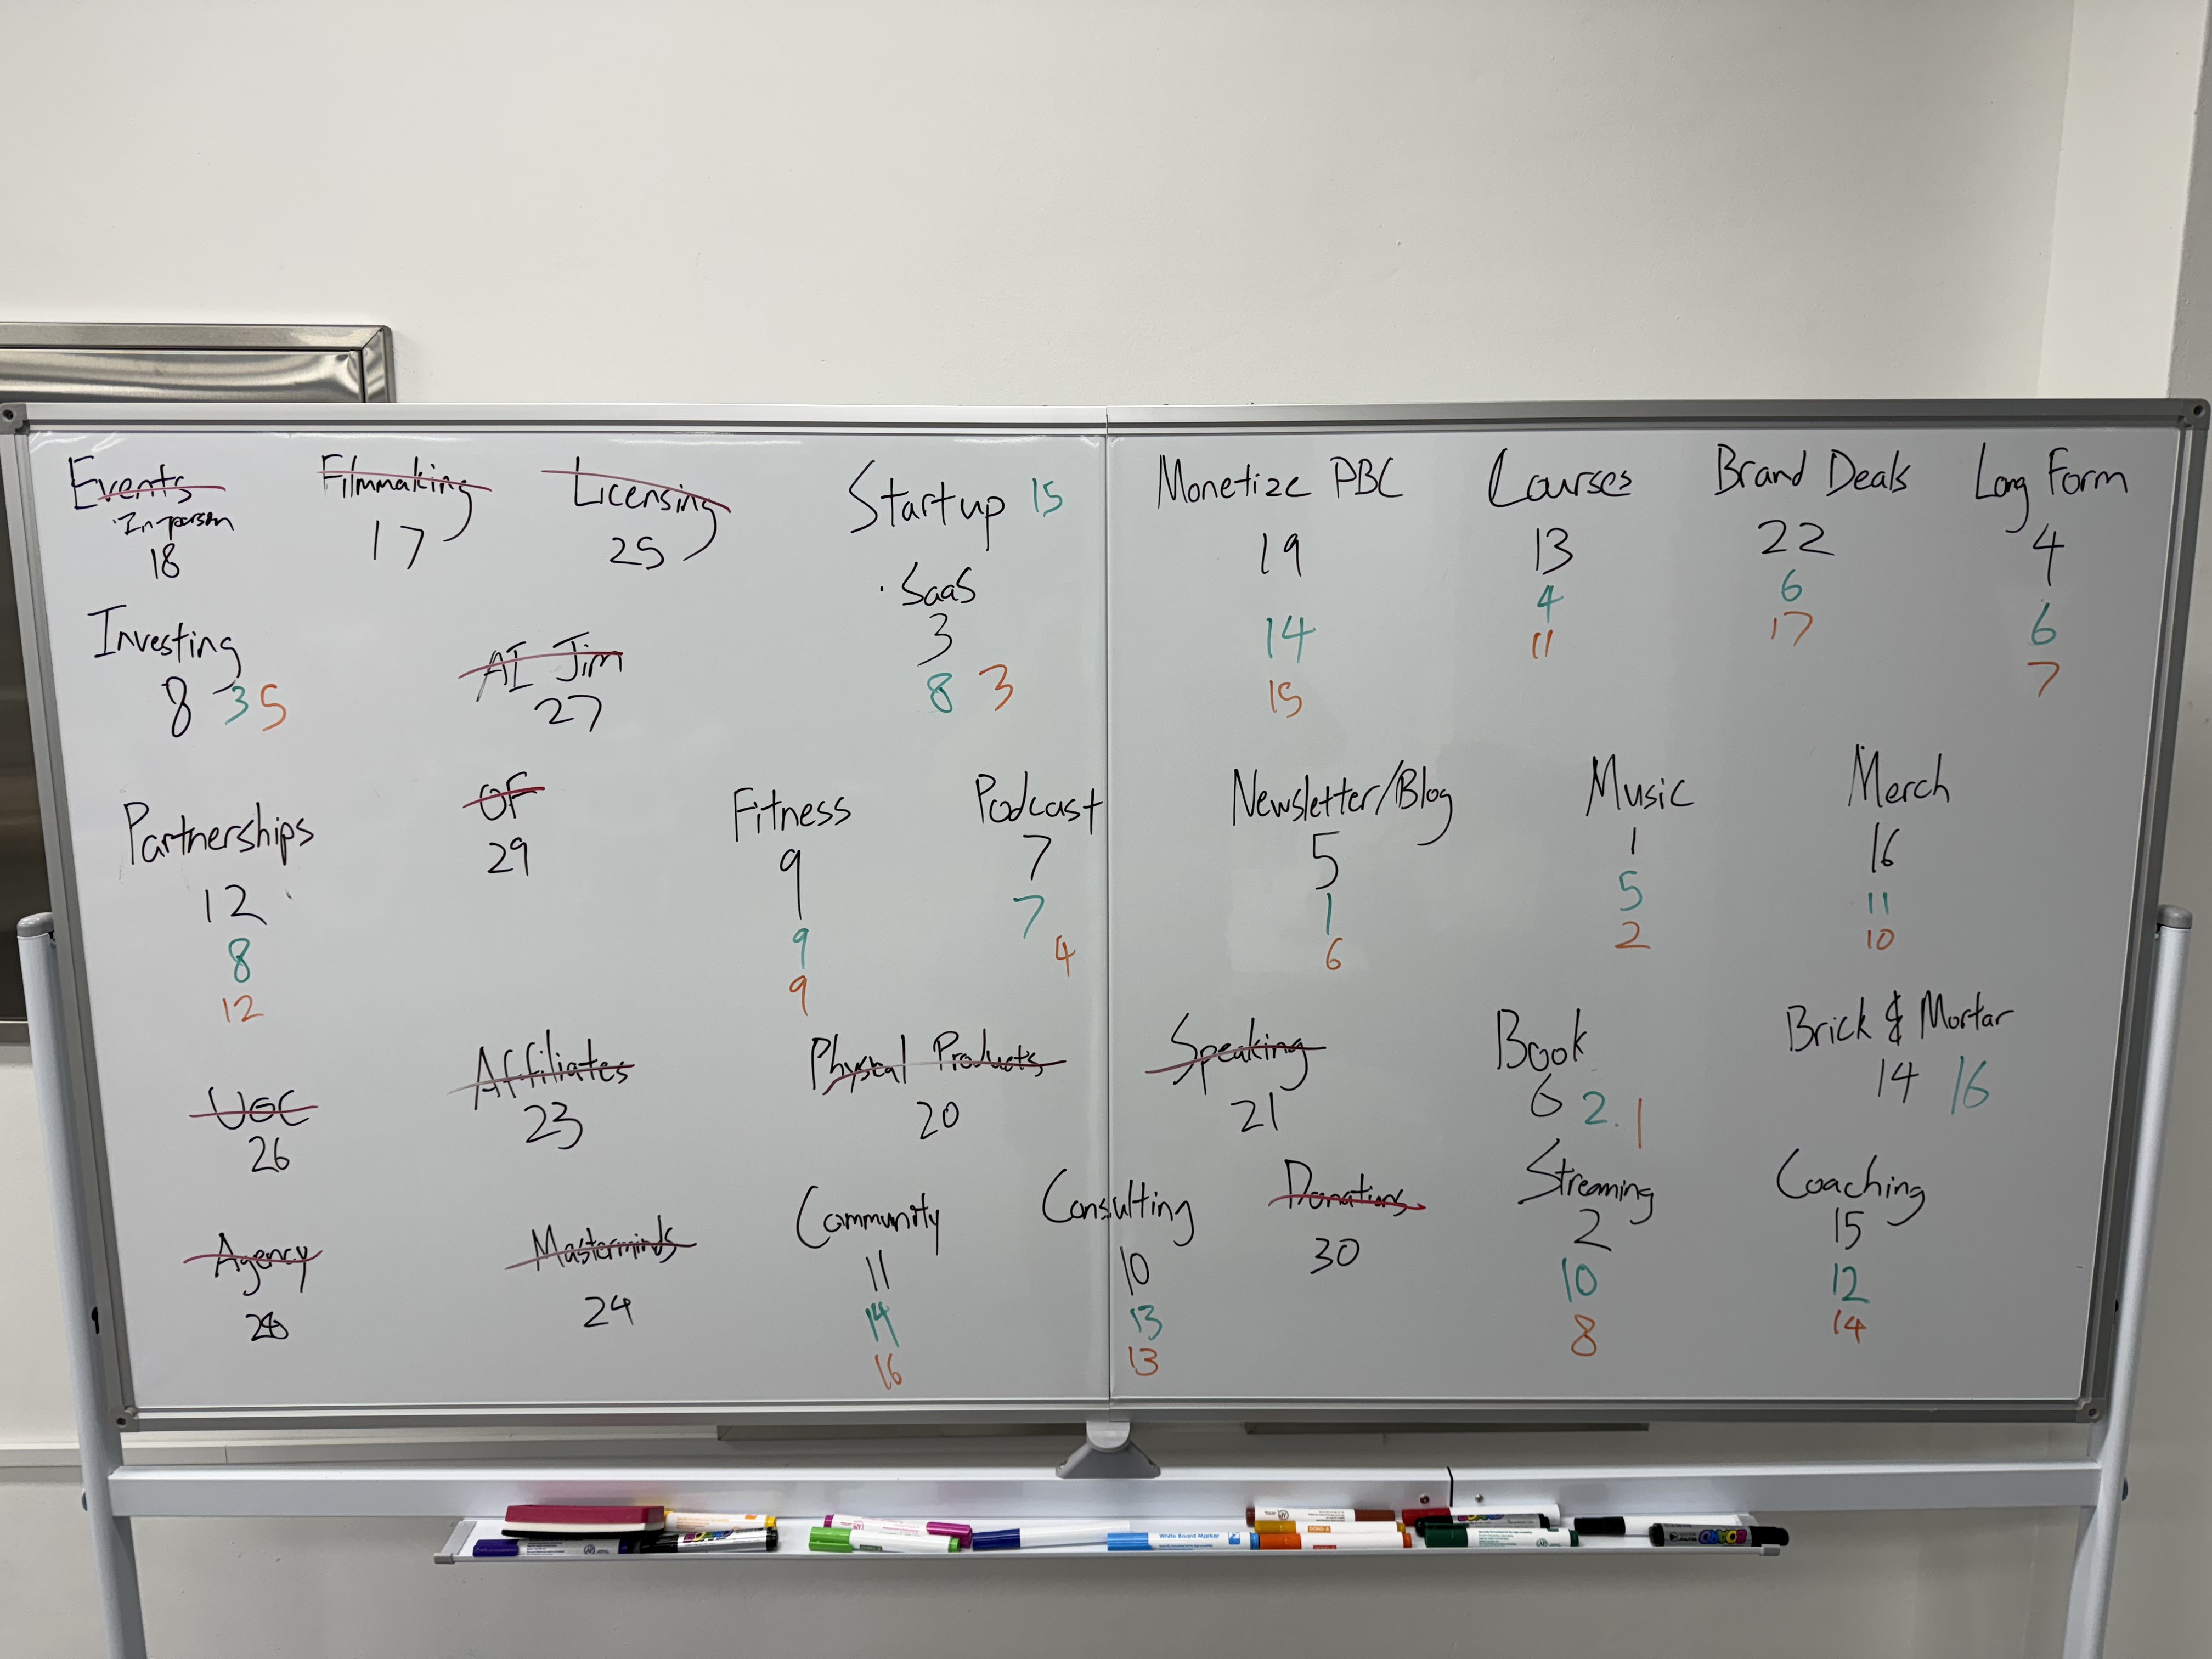 Events
·In-person
18
Filmmaking
17
Licensing
25
Startup 15
·SaaS
3
8 3
Monetize PBC
19
14
15
Courses
13
4
11
Brand Deals
22
6
17
Long Form
4
6
7
Investing
8 3 5
AI Jim
27
Partnerships
12
8
12
OF
29
Fitness
9
9
9
Podcast
7
7
4
Newsletter/Blog
5
1
6
Music
1
5
2
Merch
16
11
10
UGC
26
Affiliates
23
Physcal Products
20
Speaking
21
Book
6 2. 1
Brick & Mortar
14 16
Agency
Masterminds
24
Community
11
14
16
Consulting
10
13
13
Donations
30
Streaming
2
10
8
Coaching
15
12
14
White Board Marker